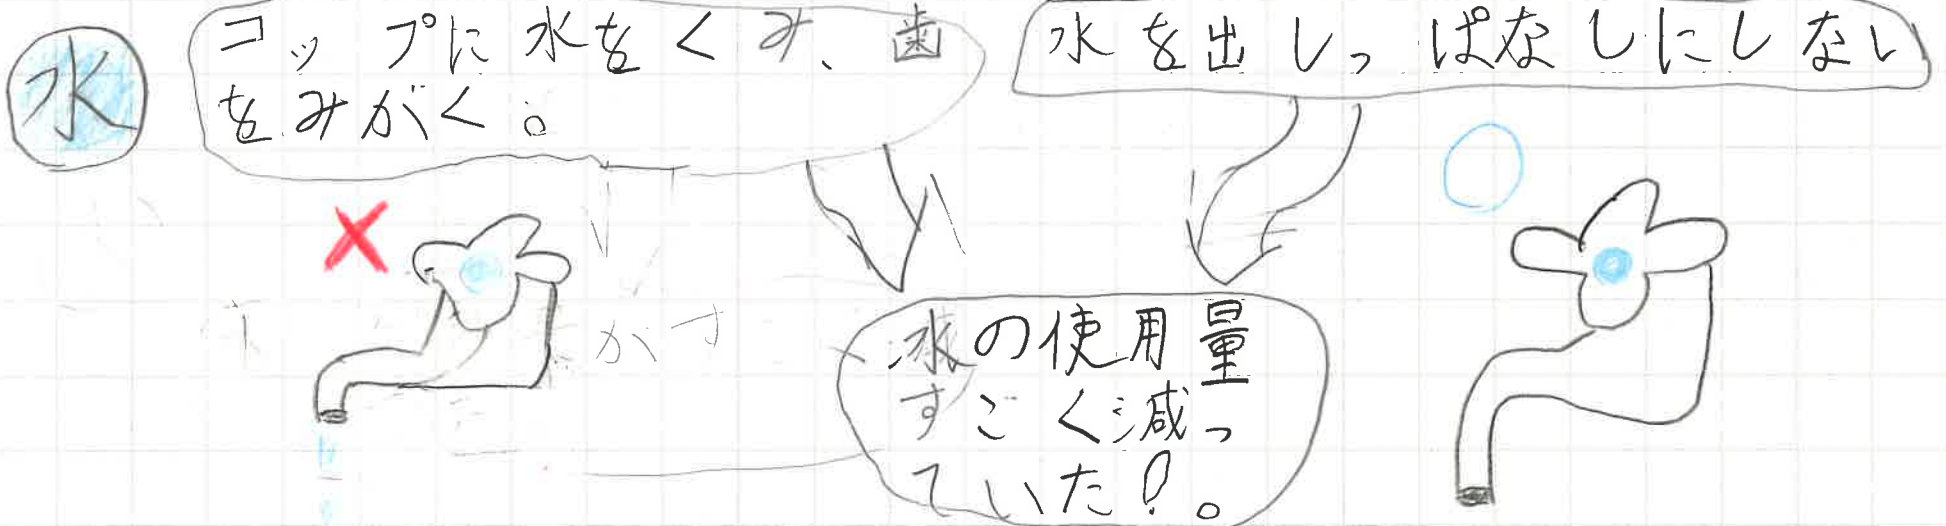 水
コップに水をくみ、歯
をみがく。
水を出しっぱなしにしない
水の使用量
すごく減っ
ていた!。